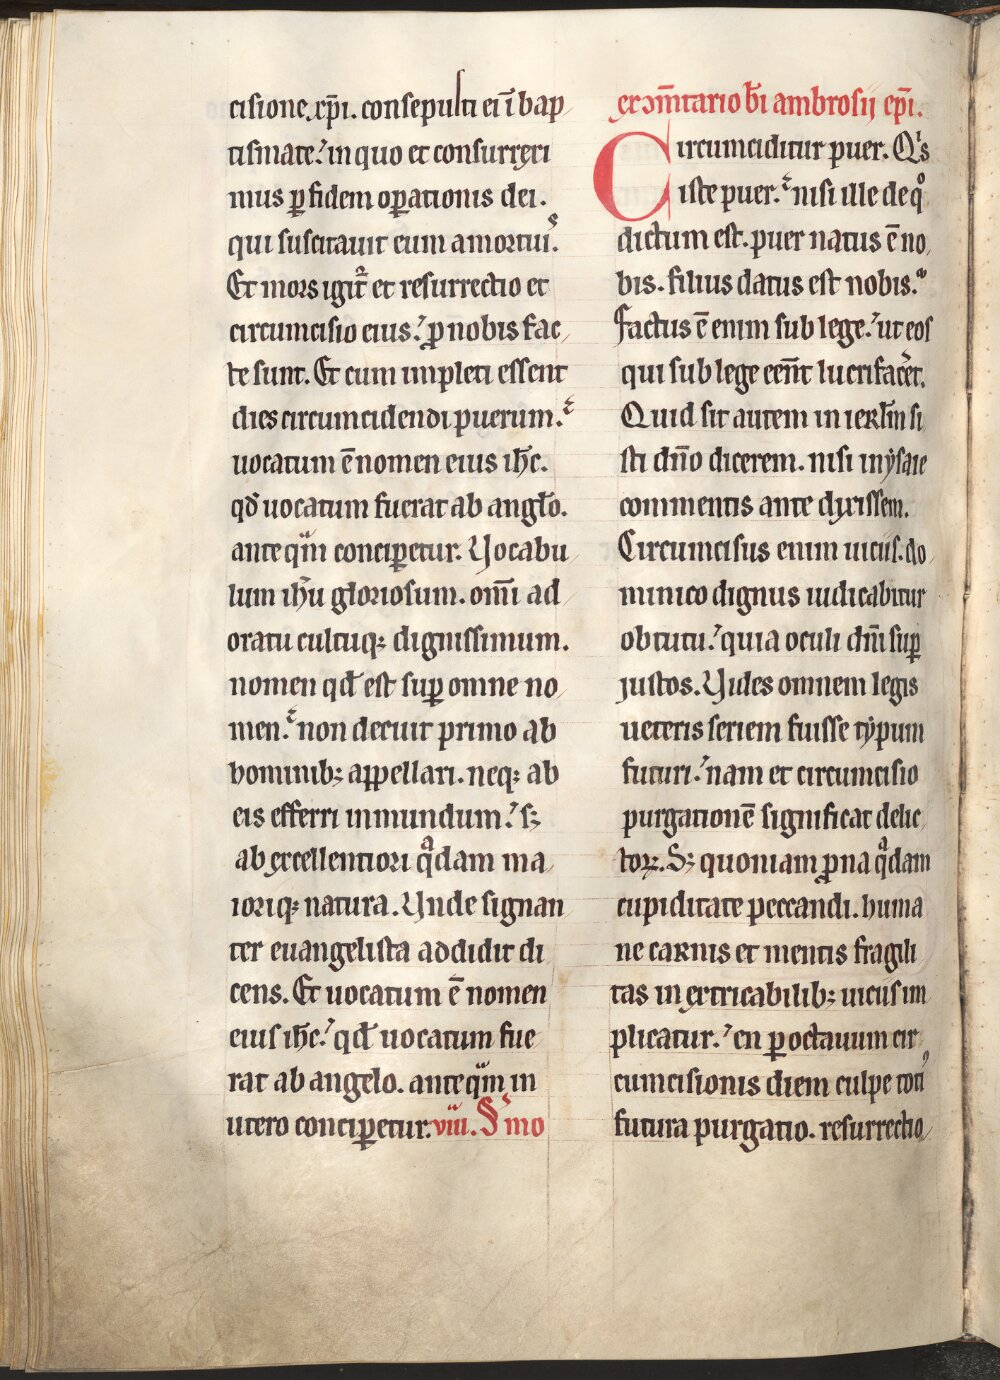 cisione xp̄i. consepulti ei ī bap
tismate.᾽ in quo et consurrexi
mus ꝑ fidem oꝑationis dei.
qui suscitauit eum a mortuiˢ.
Et mors igit᷑ et resurrectio et
circumcisio eius.᾽ ꝓ nobis fac
te sunt. Et cum impleti essent
dies circumcidendi puerum.᾽
uocatum ē nomen eius ih̅c.
qđ uocatum fuerat ab angło.
ante qͣm concipetur. Uocabu
lum ih̅u gloriosum. om̄i ad
oratu cultuqꝫ dignissimum.
nomen qđ est suꝑ omne no
men.᾽ non decuit primo ab
hominibꝫ appellari. neqꝫ ab
eis efferri in mundum.᾽ sꝫ
ab excellentiori qͣdam ma
ioriqꝫ natura. Unde signan
ter euangelista addidit di
cens. Et uocatum ē nomen
eius ih̅c.᾽ qđ uocatum fue
rat ab angelo. ante qͣm in
utero conciꝑetur. viii. Sͨmo
ex ↄm̄tario b̄i ambrosij ep̄i.
Circumciditur puer. Qⁱs
iste puer.᾽ nisi ille de qͦ
dictum est. puer natus ē no
bis. filius datus est nobis.
Factus ē enim sub lege.᾽ ut eos
qui sub lege eēnt lucrifac̄et.
Quid sit autem in ierłm si
sti dn̄o dicerem. nisi in ẏsaie
commentis ante dixissem.
Circumcisus enim uiciis. do
minico dignus iudicabitur
obtutu.᾽ quia oculi dn̄i suꝑ
justos. Uides omnem legis
ueteris seriem fuisse tẏpum
futuri.᾽ nam et circumcisio
purgationē significat delic
toꝝ. Sꝫ quoniam ꝓna qͣdam
cupiditate peccandi. huma
ne carnis et mentis fragili
tas inextricabilibꝫ uiciis im
plicatur.᾽ en ꝑ octauum cir
cumcisionis diem culpe totiꝰ
futura purgatio. resurrectio